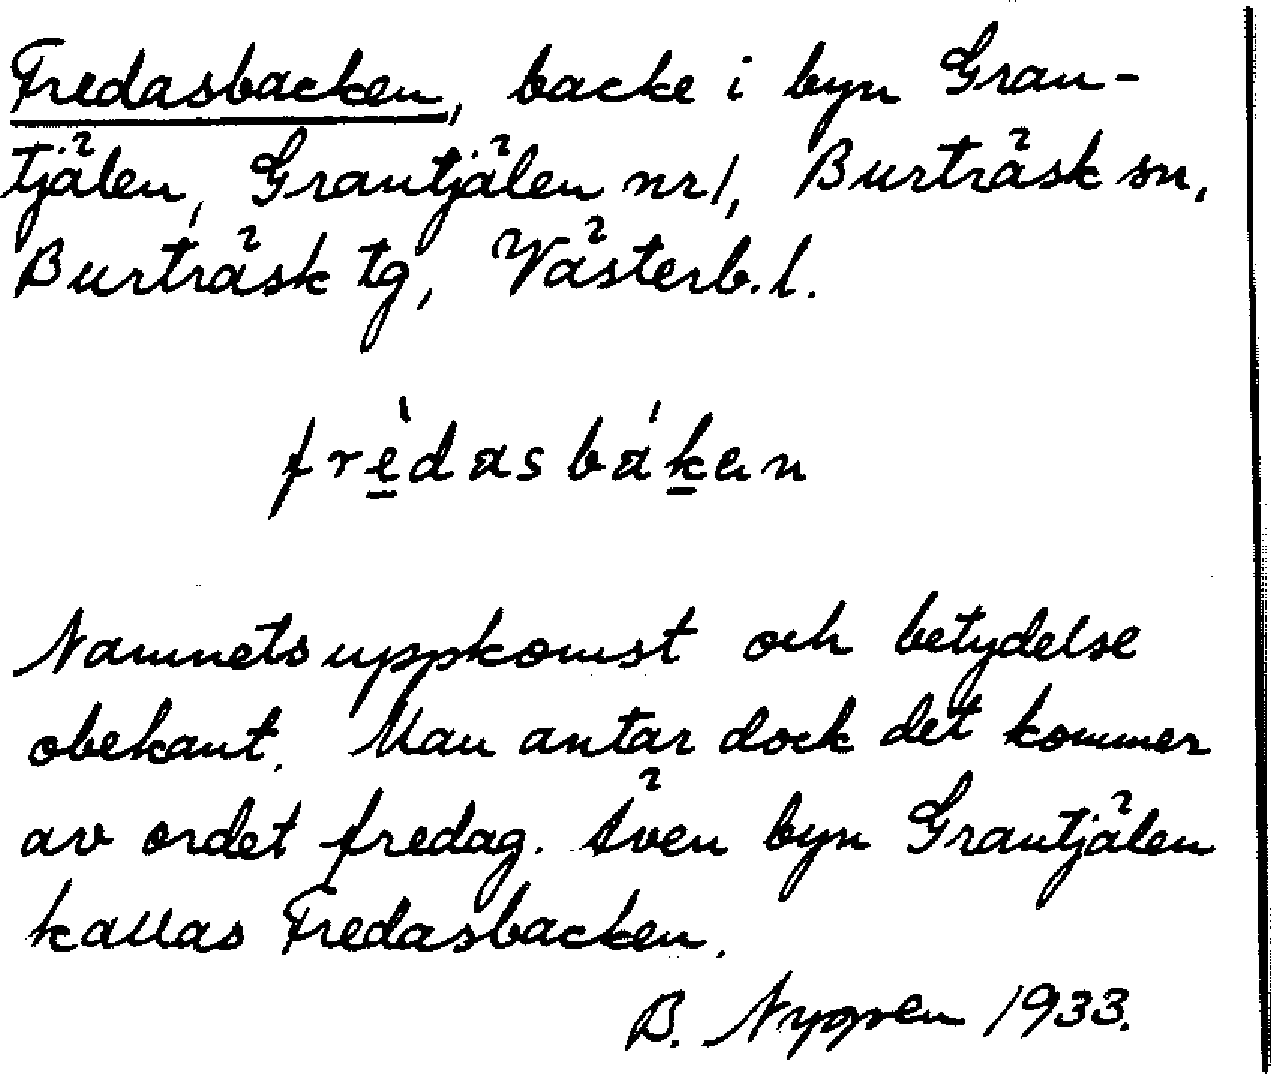 Fredasbacken, backe i byn Gran-
tjälen, Grantjälen nr 1, Burträsk sn,
Burträsk tg, Västerb. l.
frèdasbáken
Namnets uppkomst och betydelse
obekant. Man antar dock det kommer
av ordet fredag. Även byn Grantjälen
kallas Fredasbacken.
B. Nygren 1933.